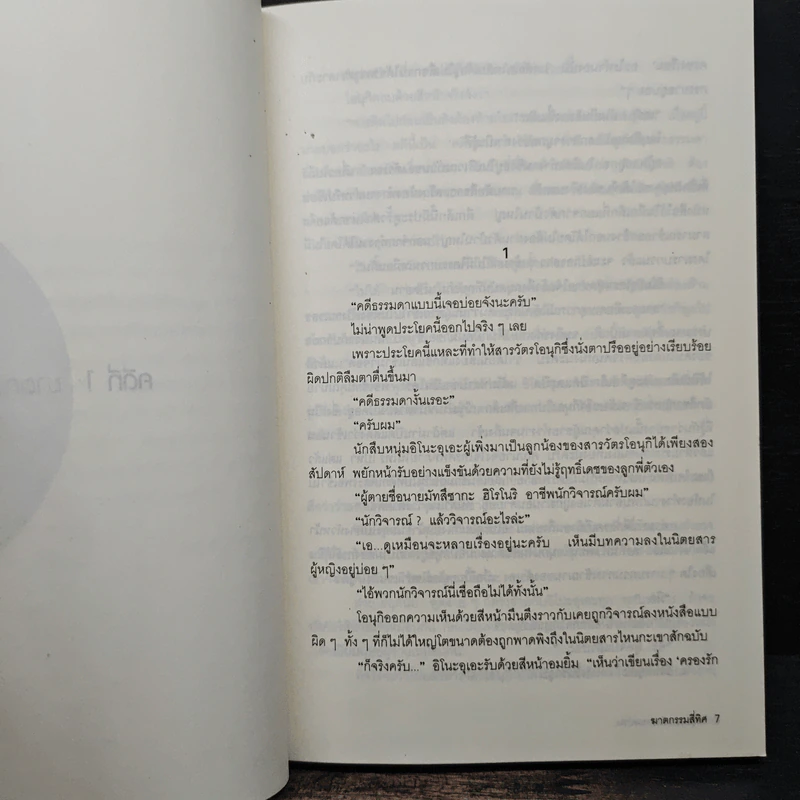 คดีที่ 1
1
“คดีธรรมดาแบบนี้เจอบ่อยจังนะครับ”
ไม่น่าพูดประโยคนี้ออกไปจริง ๆ เลย
เพราะประโยคนี้แหละที่ทำให้สารวัตรโอนุกิซึ่งนั่งตาปรืออยู่อย่างเรียบร้อย
ผิดปกติลืมตาตื่นขึ้นมา
“คดีธรรมดางั้นเรอะ”
“ครับผม”
นักสืบหนุ่มอิโนะอุเอะผู้เพิ่งมาเป็นลูกน้องของสารวัตรโอนุกิได้เพียงสอง
สัปดาห์ พยักหน้ารับอย่างแข็งขันด้วยความที่ยังไม่รู้ฤทธิ์เดชของลูกพี่ตัวเอง
“ผู้ตายชื่อนายมัทสึซากะ ฮิโรโนริ อาชีพนักวิจารณ์ครับผม”
“นักวิจารณ์ ? แล้ววิจารณ์อะไรล่ะ”
“เอ...ดูเหมือนจะหลายเรื่องอยู่นะครับ เห็นมีบทความลงในนิตยสาร
ผู้หญิงอยู่บ่อย ๆ”
“ไอ้พวกนักวิจารณ์นี่เชื่อถือไม่ได้ทั้งนั้น”
โอนุกิออกความเห็นด้วยสีหน้ามึนตึงราวกับเคยถูกวิจารณ์ลงหนังสือแบบ
ผิด ๆ ทั้ง ๆ ที่ก็ไม่ได้ใหญ่โตขนาดต้องถูกพาดพิงถึงในนิตยสารไหนกะเขาสักฉบับ
“ก็จริงครับ...” อิโนะอุเอะรับด้วยสีหน้าอมยิ้ม “เห็นว่าเขียนเรื่อง ‘ครองรัก
ฆาตกรรมสี่ทิศ 7